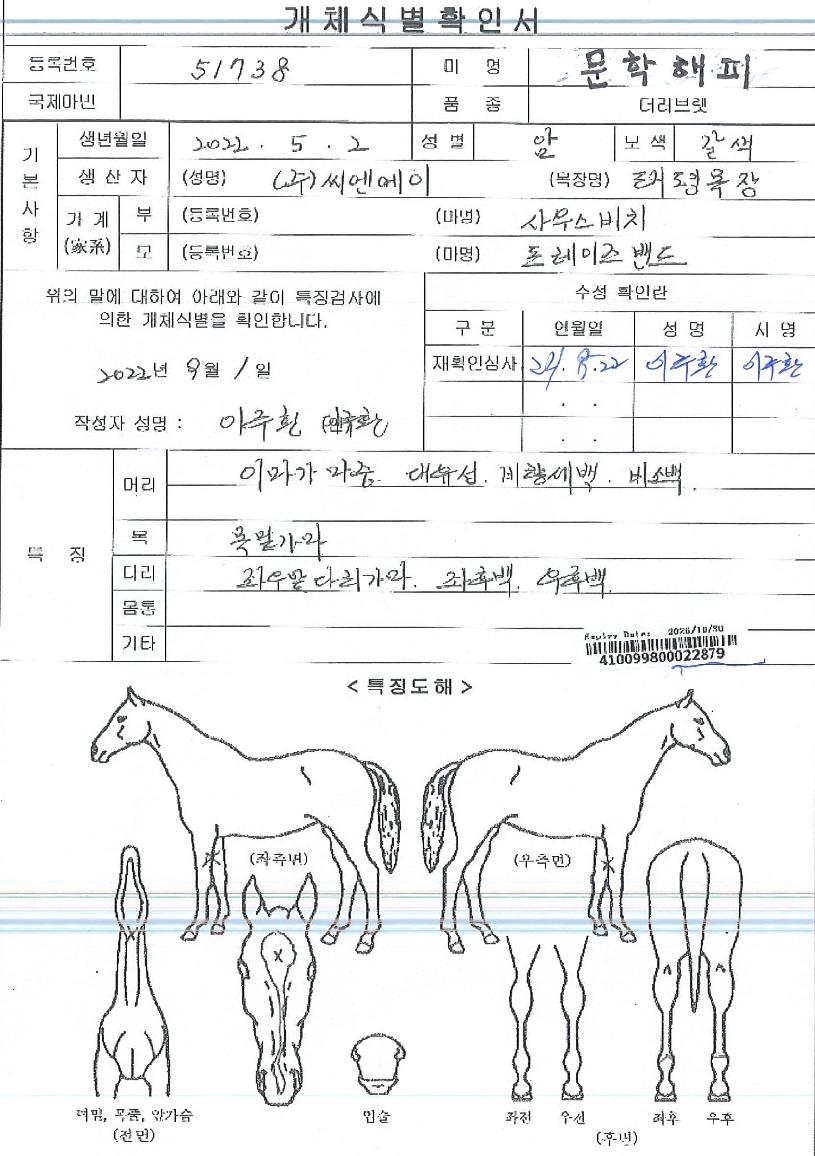 개체식별확인서
등록번호 51738 마 명 문학해피
국제마번 품 종 더러브렛
기본사항
생년월일 2022 . 5 . 2 성별 암 모색 갈색
생산자 (성명) (주)씨엔에이 (목장명)
가계 (家系) 부 (등록번호) (마명) 사우스비치
모 (등록번호) (마명) 트레이즈밴드
위의 말에 대하여 아래와 같이 특징검사에
의한 개체식별을 확인합니다.
2022년 9월 1일
작성자 성명 : 이주환
수정 확인란
구분 연월일 성명 서명
재확인심사 이주환 이주환
. .
. .
특징
머리 이마가마중. 대유성. 비소백.
목 목밑가마
다리 좌우앞다리가마. 좌후백. 우후백.
몸통
기타
Expiry Date: 2026/10/30
410099800022879
< 특징도해 >
(좌측면) (우측면)
아랫턱, 목쪽, 앞가슴
(전면)
입술
좌전 우전 좌후 우후
(후면)